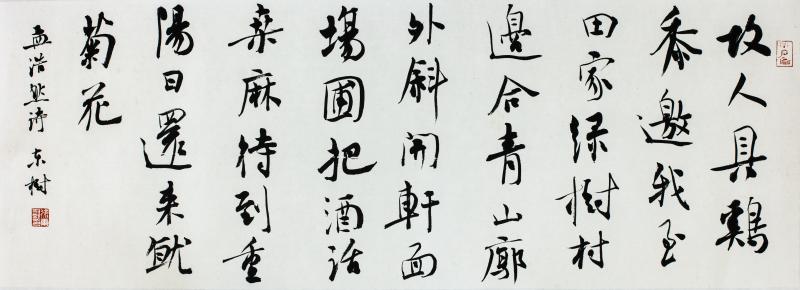 故人具鷄
黍邀我至
田家綠樹村
邊合青山廓
外斜開軒面
塲圃把酒話
桑麻待到重
陽日還来就
菊花
孟浩然詩 东樹